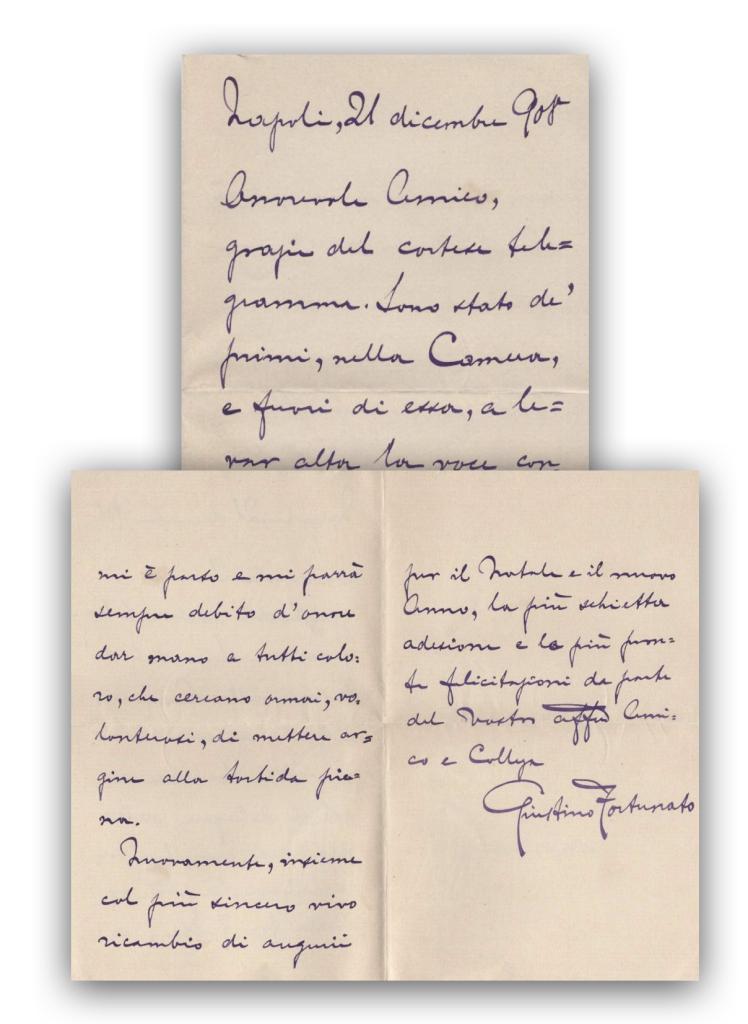 Napoli, 21 dicembre 908
Onorevole Amico,
grazie del cortese tele=
gramma. Sono stato de'
primi, nella Camera,
e fuori di essa, a le=
var alta la voce con
mi è parso e mi parrà
sempre debito d'onore
dar mano a tutti colo:
ro, che cercano ormai, vo:
lonterosi, di mettere ar=
gine alla torbida pie=
na.
Nuovamente, insieme
col più sincero vivo
ricambio di augurii
per il Natale e il nuovo
Anno, la più schietta
adesione e le più pron:
te felicitazioni da parte
del Vostro affmo Ami:
co e Collega
Giustino Fortunato